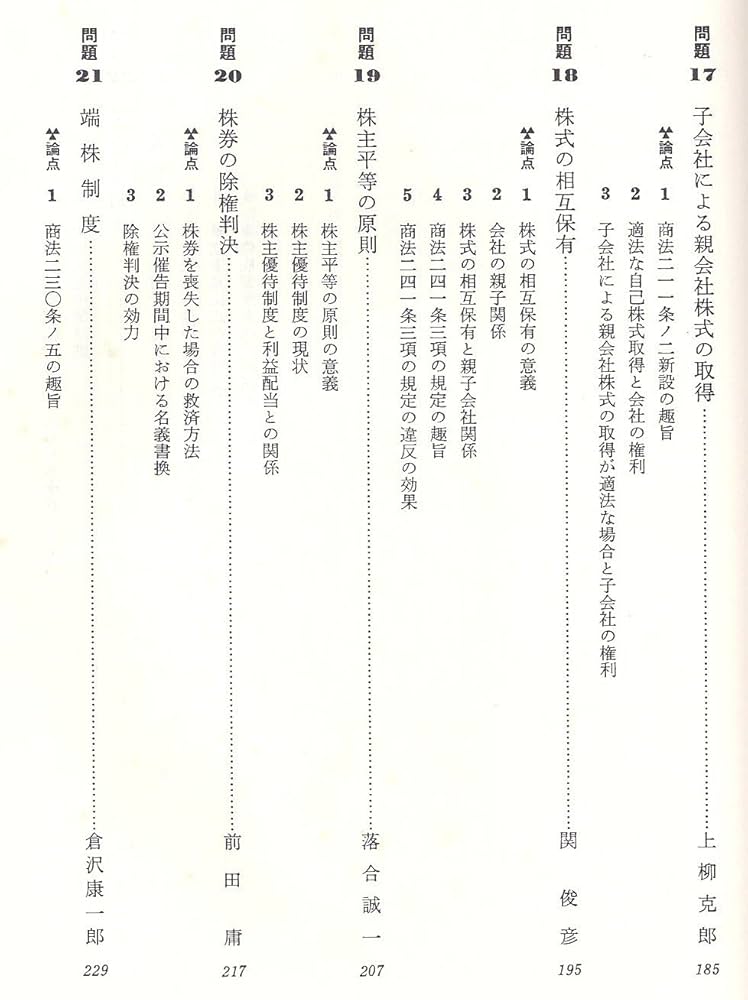 問題17 子会社による親会社株式の取得……上柳克郎 185
論点 1 商法二一一条ノ二新設の趣旨
2 適法な自己株式取得と会社の権利
3 子会社による親会社株式の取得が適法な場合と子会社の権利
問題18 株式の相互保有……関俊彦 195
論点 1 株式の相互保有の意義
2 会社の親子関係
3 株式の相互保有と親子会社関係
4 商法二四一条三項の規定の趣旨
5 商法二四一条三項の規定の違反の効果
問題19 株主平等の原則……落合誠一 207
論点 1 株主平等の原則の意義
2 株主優待制度の現状
3 株主優待制度と利益配当との関係
問題20 株券の除権判決……前田庸 217
論点 1 株券を喪失した場合の救済方法
2 公示催告期間中における名義書換
3 除権判決の効力
問題21 端株制度……倉沢康一郎 229
論点 1 商法二三〇条ノ五の趣旨